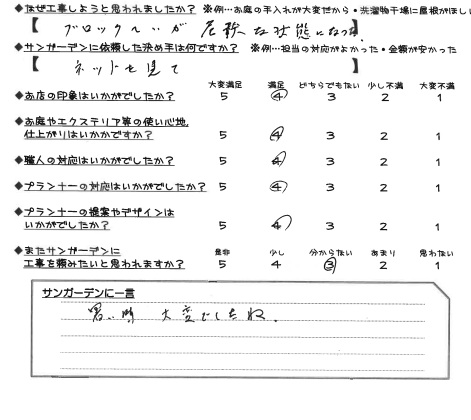 ◆なぜ工事しようと思われましたか？ ※例…お庭の手入れが大変だから・洗濯物干場に屋根がほしい
【 ブロックヘいが 危険な状態になって 】
◆サンガーデンに依頼した決め手は何ですか？ ※例…担当の対応がよかった・金額が安かった
【 ネットを見て 】
大変満足 満足 どちらでもない 少し不満 大変不満
◆お店の印象はいかがでしたか？ 5 4 3 2 1
◆お庭やエクステリア等の使い心地、
仕上がりはいかかですか？ 5 4 3 2 1
◆職人の対応はいかがでしたか？ 5 4 3 2 1
◆プランナーの対応はいかがでしたか？ 5 4 3 2 1
◆プランナーの提案やデザインは
いかがでしたか？ 5 4 3 2 1
◆またサンガーデンに 是非 少し 分からない あまり 思わない
工事を頼みたいと思われますか？ 5 4 3 2 1
サンガーデンに一言
暑い時 大変でしたね。